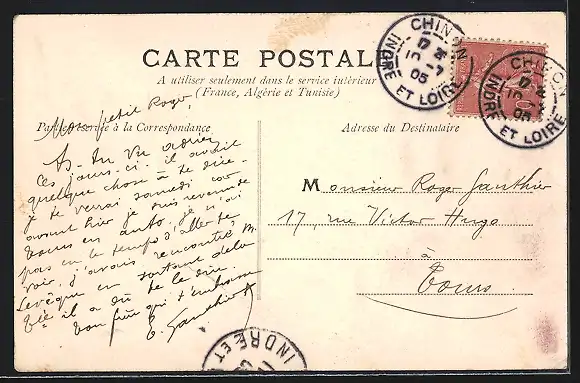 CARTE POSTALE
A utiliser seulement dans le service intérieur
(France, Algérie et Tunisie)
Partie réservée à la Correspondance
Adresse du Destinataire
CHINON
10 -7
05
INDRE ET LOIRE
CHINON
10
05
INDRE ET LOIRE
Mon petit Roger,
As-tu vu
ces jours-ci. il avait
quelque chose à te dire.
je te verrai samedi car
avant hier je suis revenu de
Tours en auto. je n'ai
pas eu le temps d'aller te
voir. j'avais rencontré M.
Levêque en sortant de la
il a dû te le dire.
Ton frère qui t'embrasse
E. Gauthier
Monsieur Roger Gauthier
17, rue Victor Hugo
à
Tours
INDRE ET